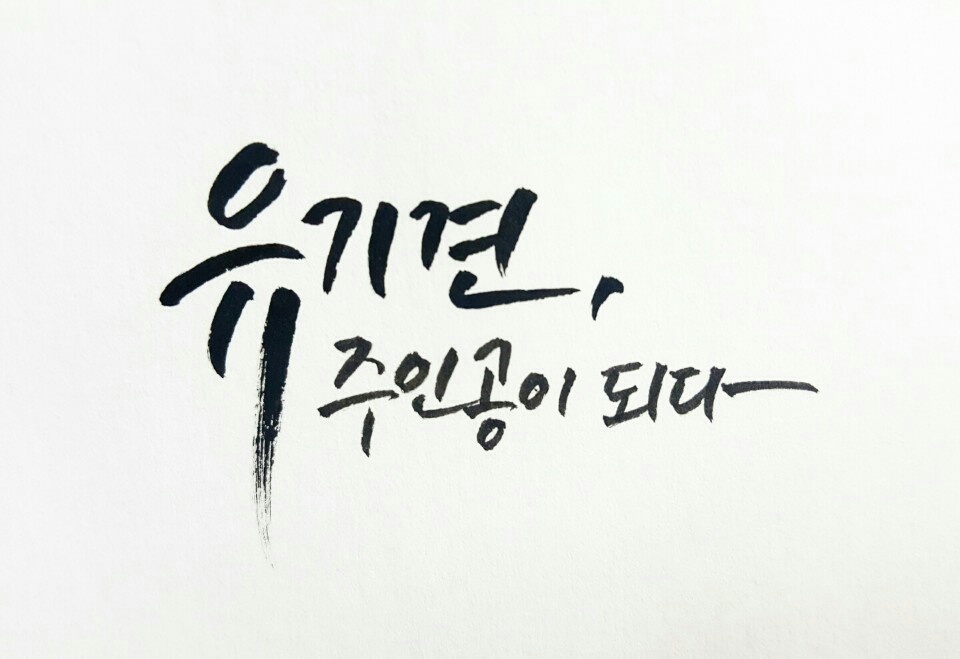 유기견,
주인공이 되다